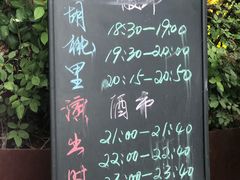 胡桃里演出时
18:30-19:00
19:30-20:00
20:15-20:50
酒市
21:00-21:40
22:00-22:40